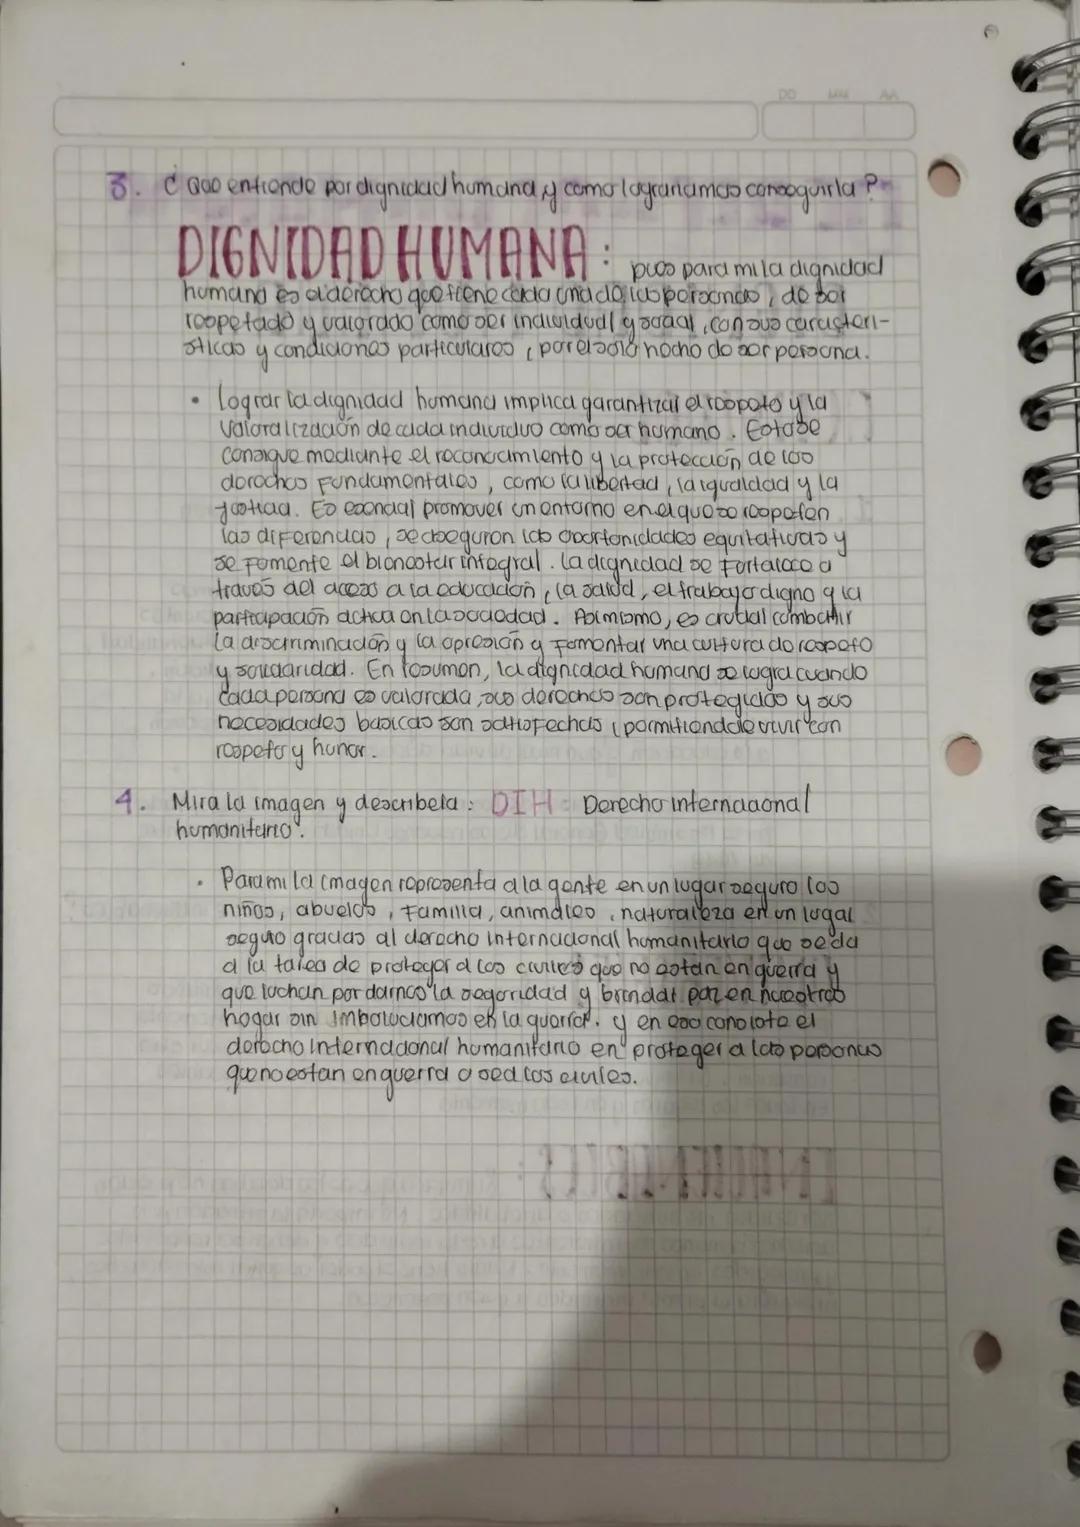 DD MM AA
3. ¿Que entiende por dignidad humana y como lograriamos conseguirla?
DIGNIDAD HUMANA: pues para mi la dignidad
humana es el derecho que tiene cada una de las personas, de ser
respetado y valorado como ser individual y social, con sus caracteri-
sticas y condiciones particulares, por el solo hecho de ser persona.
• Lograr la dignidad humana implica garantizar el respeto y la
valoralización de cada individuo como ser humano. Esto se
consigue mediante el reconocimiento y la protección de los
derechos fundamentales, como la libertad, la igualdad y la
justicia. Es esencial promover un entorno en el que se respeten
las diferencias, se aseguren las oportunidades equitativas y
se fomente el bienestar integral. La dignidad se fortalece a
través del acceso a la educación, la salud, el trabajo digno y la
participación activa en la sociedad. Asimismo, es crucial combatir
la discriminación y la opresión y fomentar una cultura de respeto
y solidaridad. En resumen, la dignidad humana se logra cuando
cada persona es valorada, sus derechos son protegidos y sus
necesidades basicas son satisfechas, permitiendole vivir con
respeto y honor.
4. Mira la imagen y describela: DIH: Derecho Internacional
humanitario.
• Para mi la imagen representa a la gente en un lugar seguro los
niños, abuelos, familia, animales, naturaleza en un lugar
seguro gracias al derecho internacional humanitario que se da
a la tarea de proteger a los civiles que no estan en guerra y
que luchan por darnos la seguridad y brindar paz en nuestros
hogar sin imbolucrarnos en la guerra. y en eso consiste el
derecho internacional humanitario en proteger a las personas
que no estan en guerra o sea los civiles.